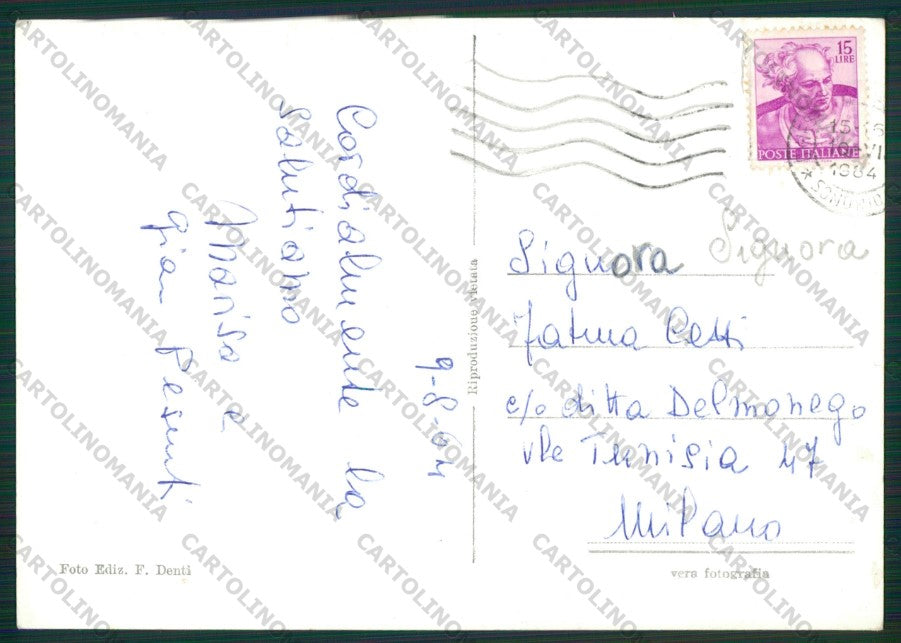 Cordialmente la
salutiamo
Marisa e
gian Pesenti
9-8-64
Foto Ediz. F. Denti
Riproduzione vietata
15
LIRE
POSTE ITALIANE
15-16
1964
Signora
Signora
Fatma Cetti
c/o ditta Delmonego
vle Tunisia 47
Milano
vera fotografia
CARTOLINOMANIA